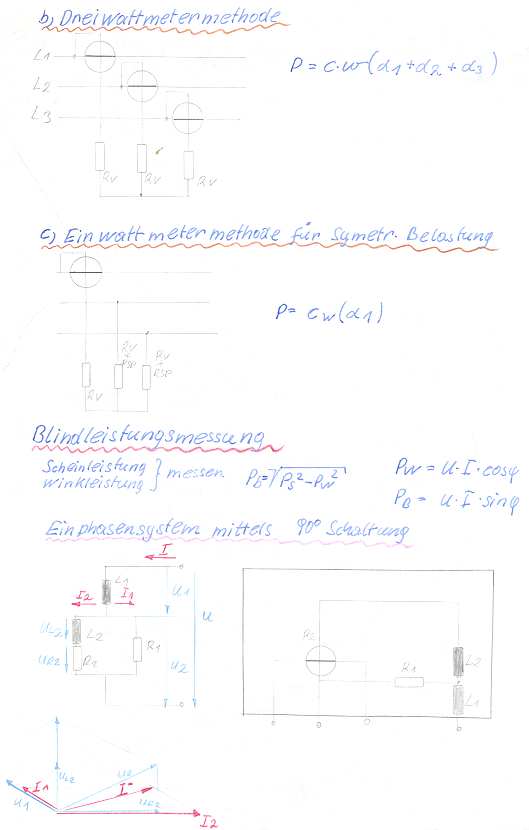 b) Dreiwattmetermethode
L1
L2
L3
P = c·w(α1+α2+α3)
Rv Rv Rv
c) Einwattmetermethode für Symetr. Belastung
P = cw(α1)
Rv
Rv
+
Rsp
Rv
+
Rsp
Blindleistungsmessung
Scheinleistung
Winkleistung } messen PB=√PS²-PW²
PW = U·I·cosφ
PB = U·I·sinφ
Einphasensystem mittels 90° Schaltung
I
L1
U1
I2 I1
U
UL2
L2
UR2
R1
R1
U2
R2
L2
R1
L1
UL2
U2
I1
I
U1
UR2
I2